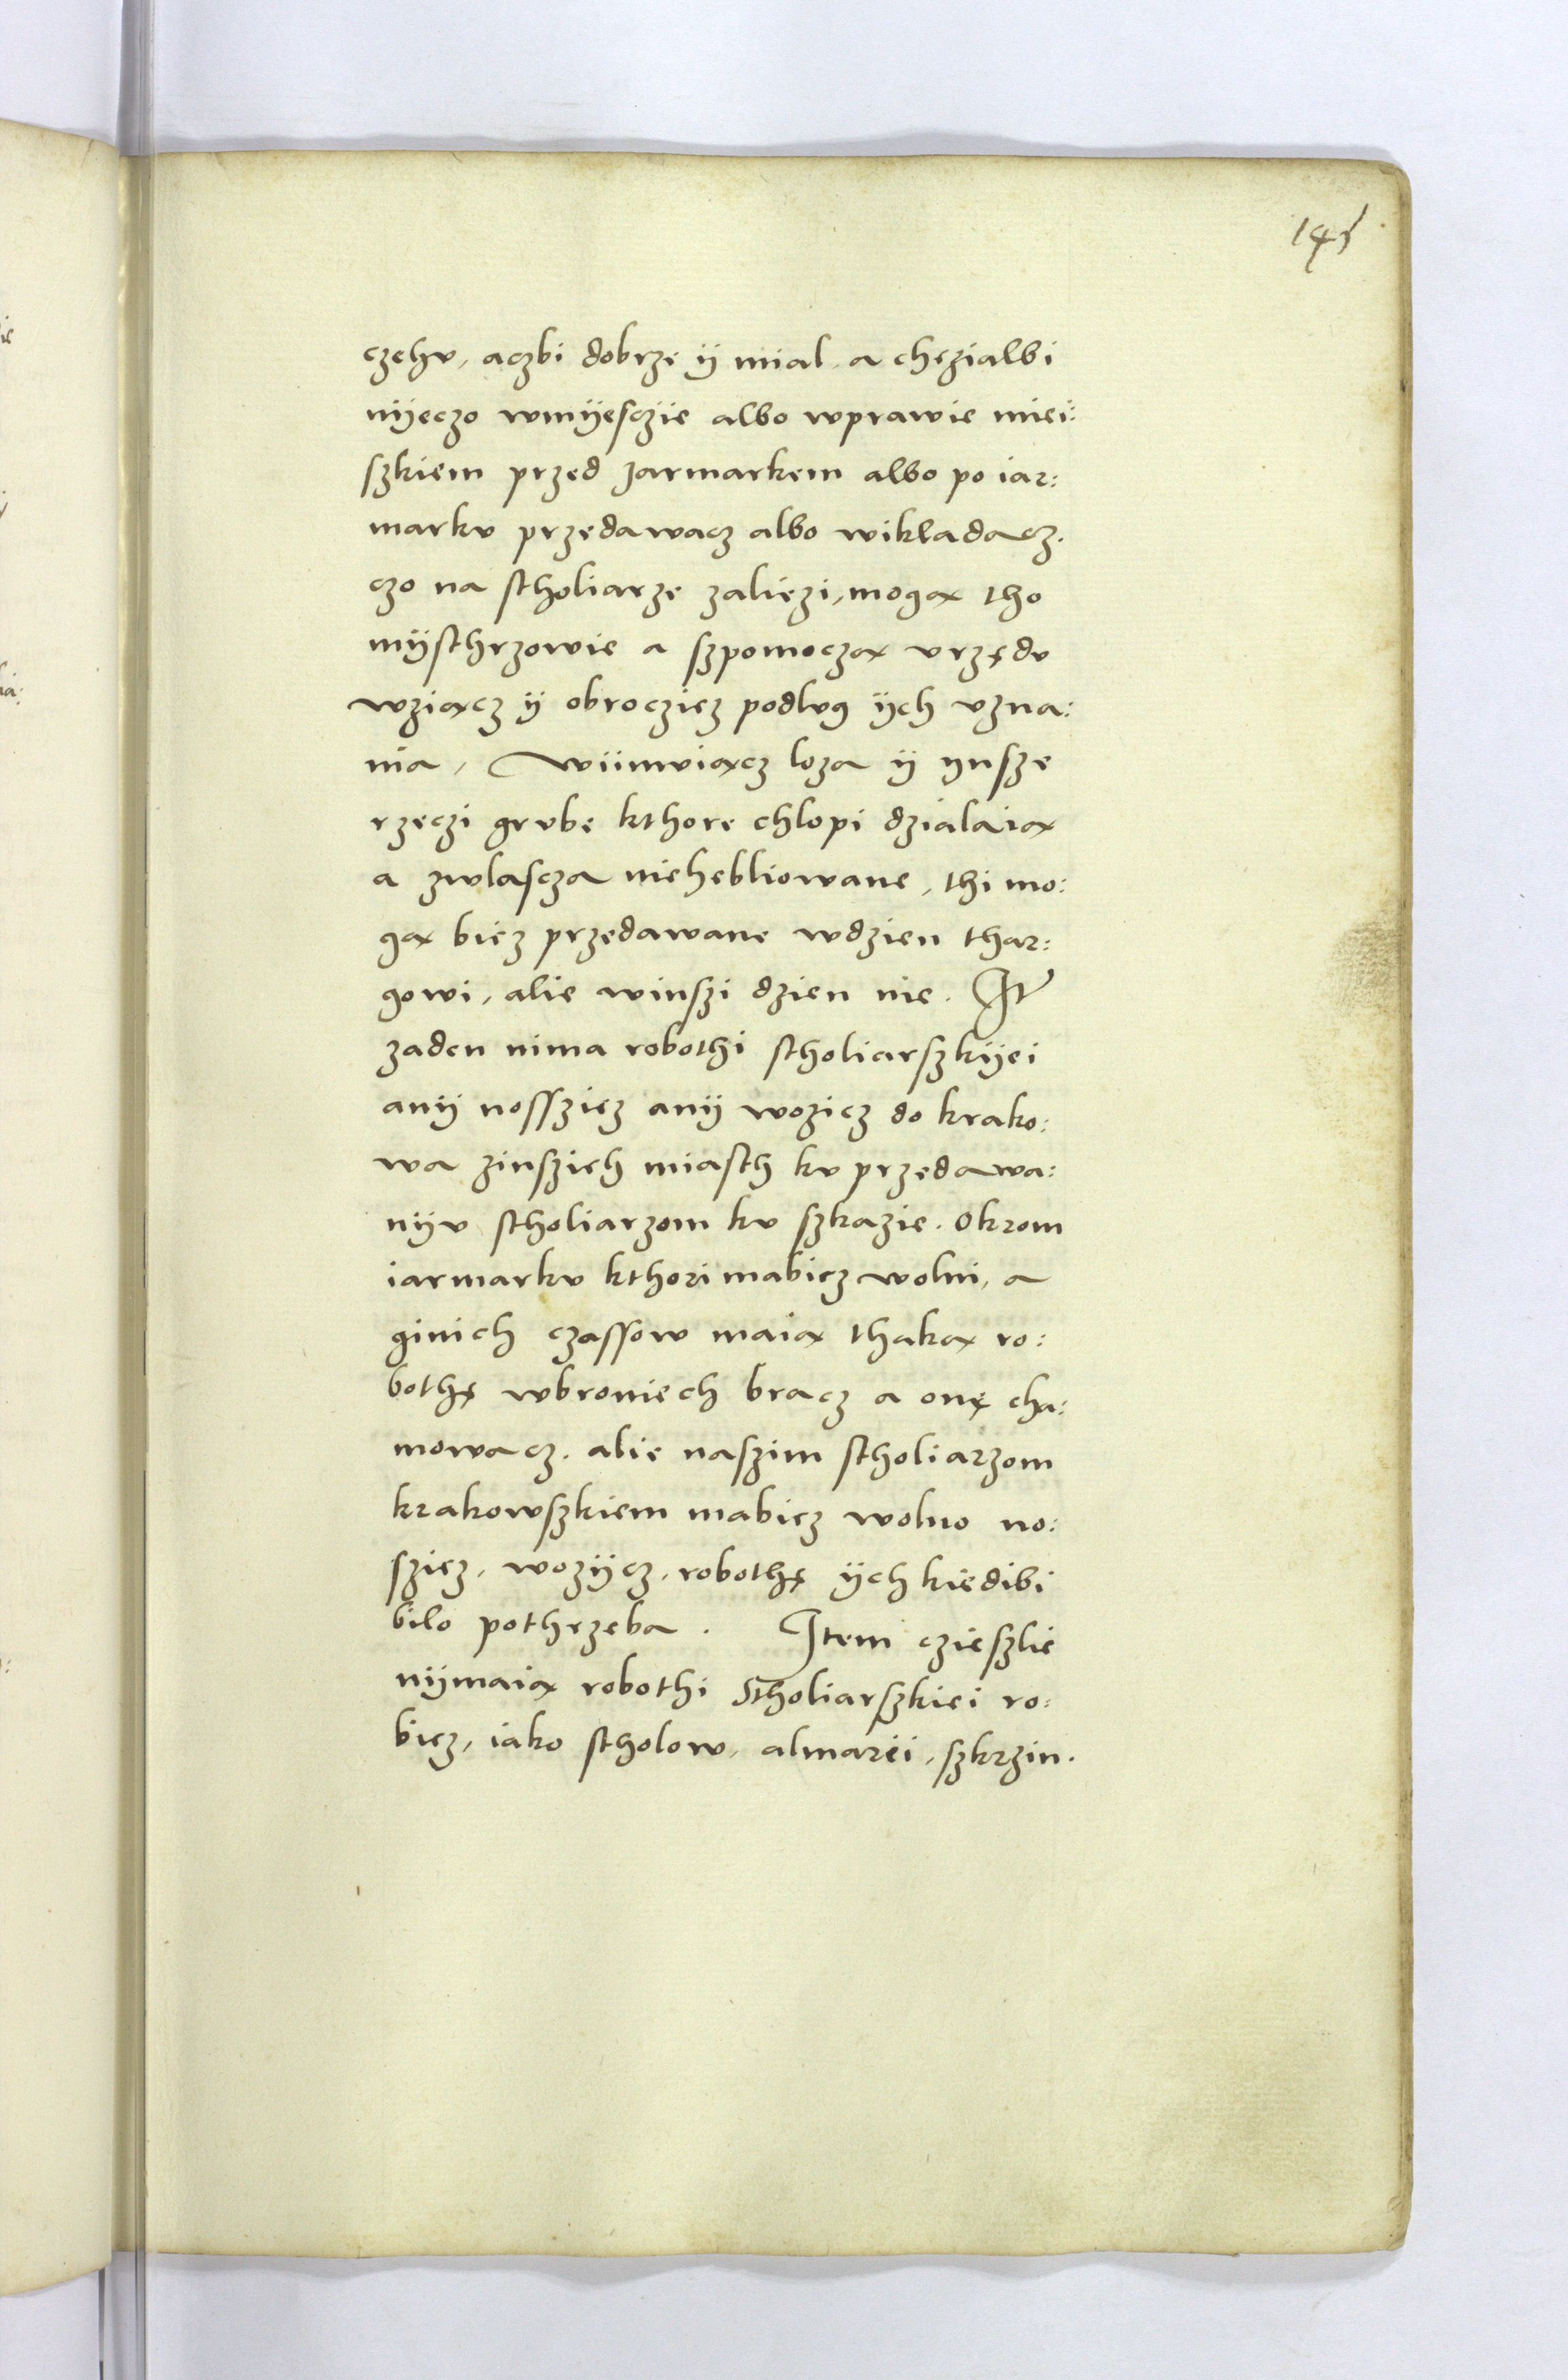 145
czechv, aczbi dobrze ÿ mial, a chczialbi
nÿeczo wmÿesczÿe albo wprawie miei:
szkiem przed Jarmarkem albo po iar:
markv przedawacz albo wikladacz.
czo na stholiarze zaliezi, mogax tho
mÿsthrzowie a szpomoczax vrzędv
wziaxcz ÿ obroczicz podlvg ÿch vzna:
nia, Wÿimviaxcz loza ÿ ynsze
rzeczi grvbe kthore chlopi dzialaiax
a zwlascza niehebliowane, thi mo:
gax bicz przedawane wdzien thar:
gowi, alie winszi dzien nie. It
zaden nima robothi stholiarszkÿei
anÿ nosszicz anÿ wozicz do krako:
wa zinszich miasth kv przedawa:
nÿv stholiarzom kv szkazie. Okrom
iarmarkv kthori mabicz wolni, a
ginich czassow maiax thakax ro:
bothę wbroniech bracz a onę cha:
mowacz. alie naszim stholiarzom
krakowszkiem mabicz wolno no:
szicz, wozÿcz, robothę ÿch kiedibi
bilo pothrzeba. Item czieszlie
nÿmaiax robothi Stholiarszkiei ro:
bicz, iako stholow, almarei, szkrzin.